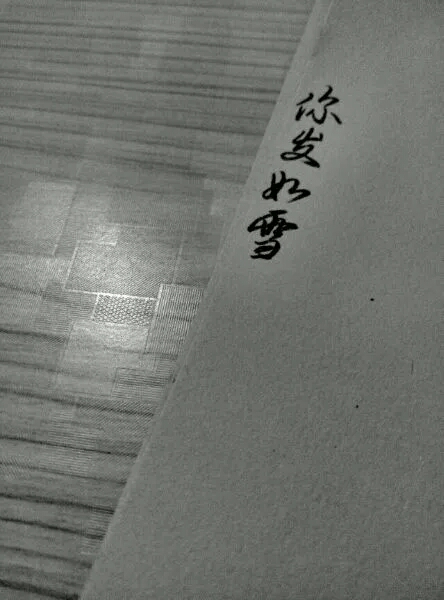 你发如雪